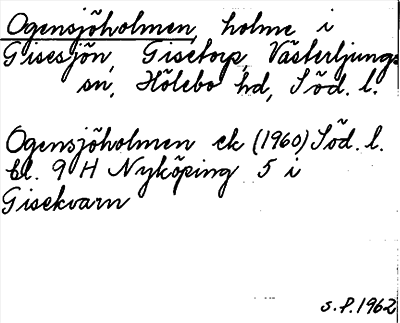 Ogensjöholmen, holme i
Gisesjön, Gisetorp, Västerljungs
sn, Hölebo hd, Söd. l.
Ogensjöholmen ek (1960) Söd. l.
bl. 9 H Nyköping 5 i
Gisekvarn
s.f. 1962